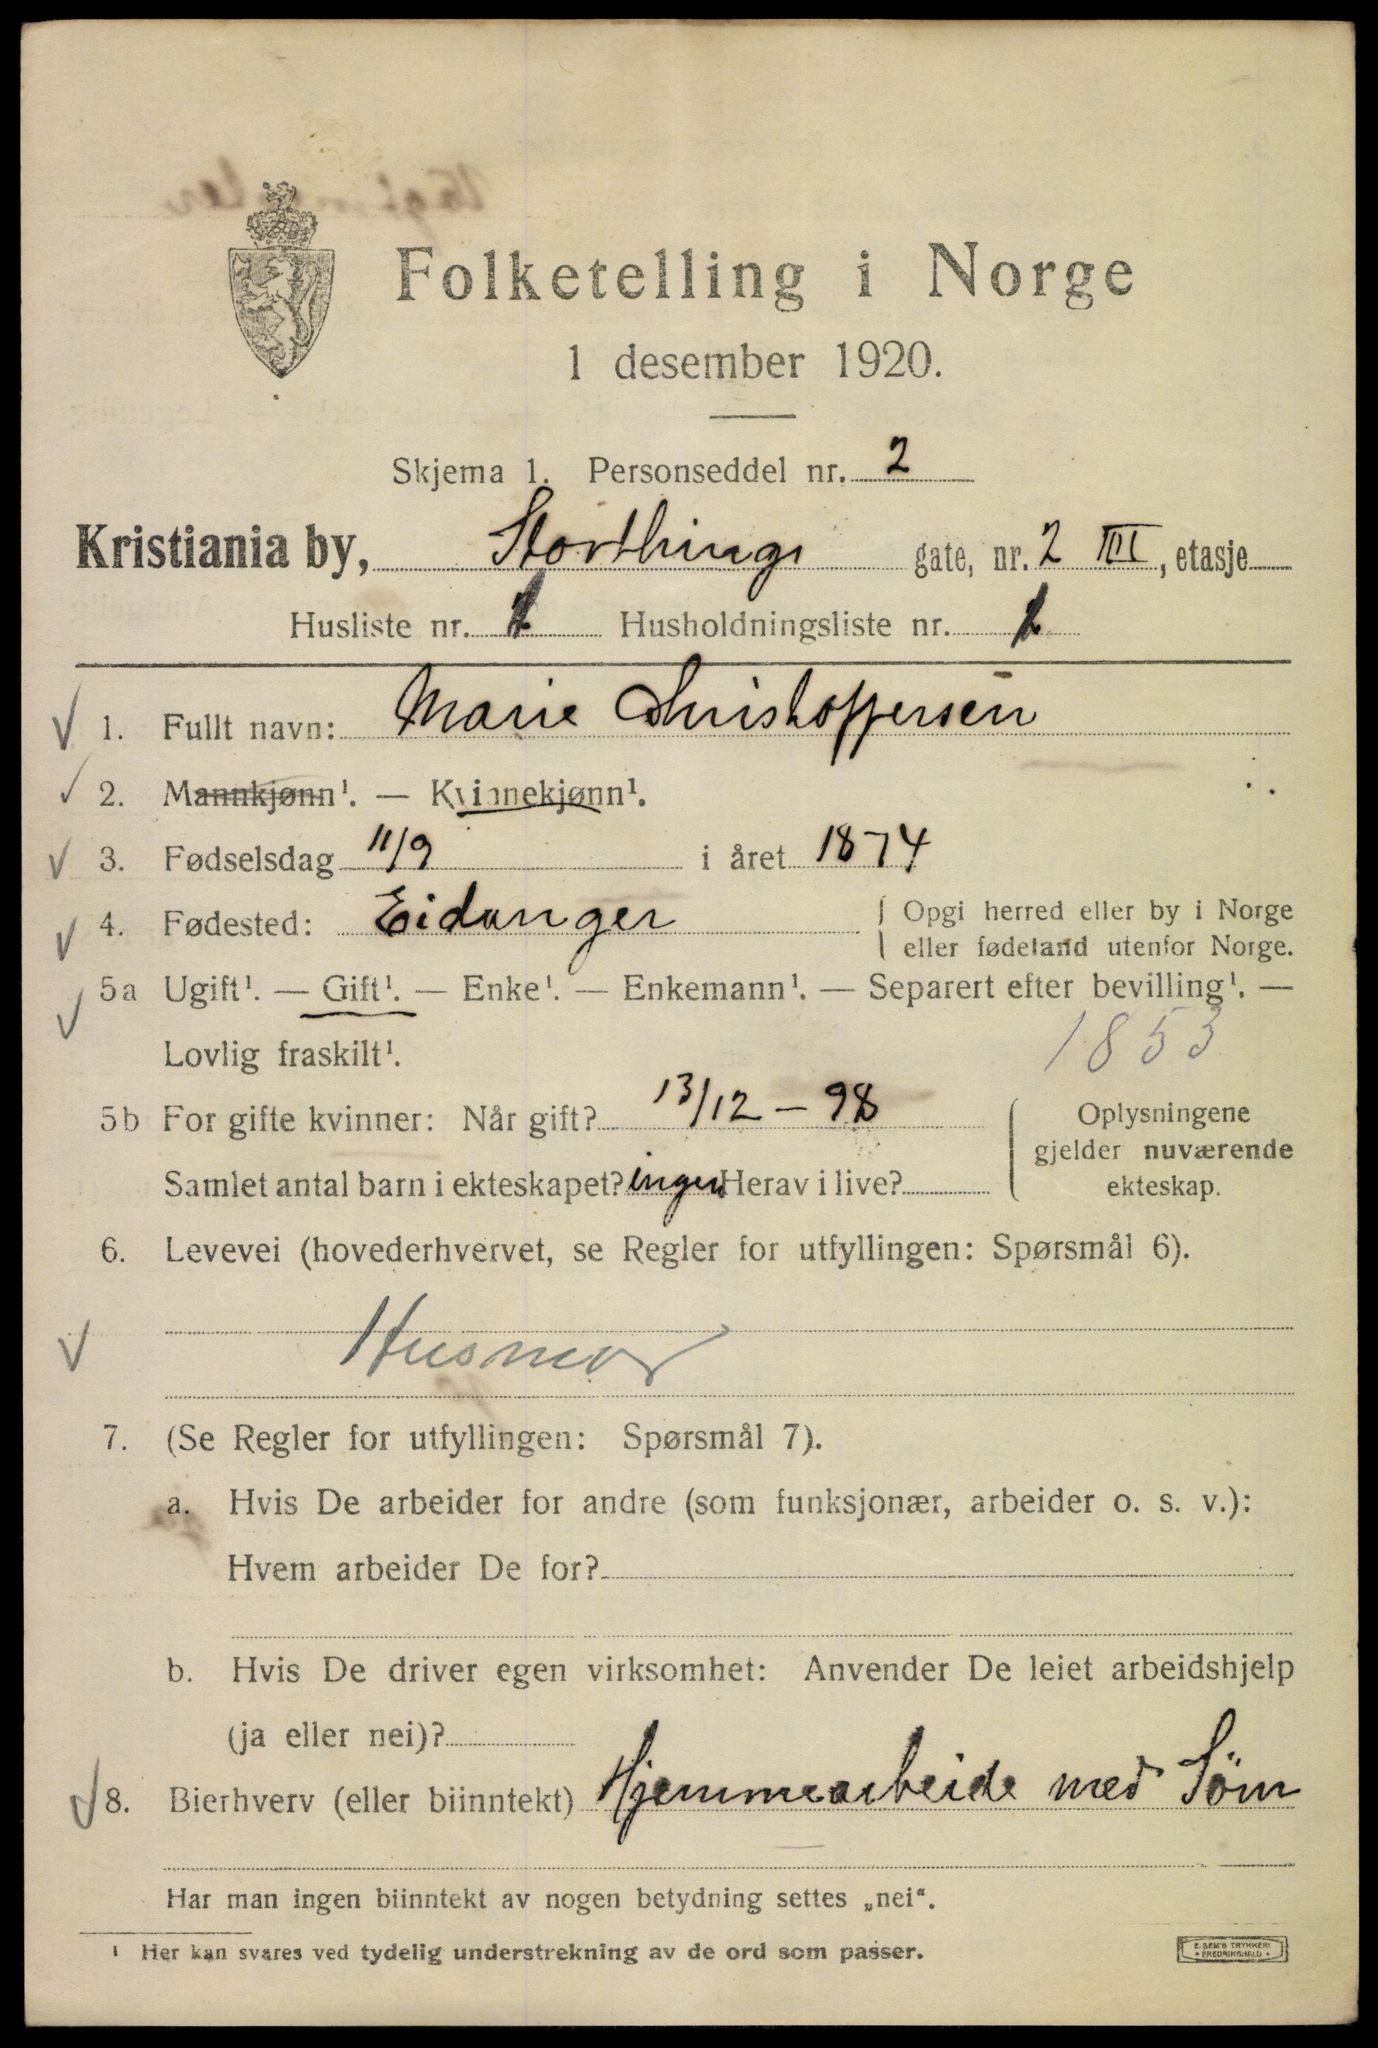 Folketelling i Norge
1 desember 1920.
Skjema 1. Personseddel nr. 2
Kristiania by, Storthings gate, nr. 2 III, etasje
Husliste nr. Husholdningsliste nr.
1. Fullt navn: Marie Christoffersen
2. Mannkjønn¹. — Kvinnekjønn¹.
3. Fødselsdag 11/9 i året 1874
4. Fødested: Eidanger { Opgi herred eller by i Norge
eller fødeland utenfor Norge.
5a Ugift¹. — Gift¹. — Enke¹. — Enkemann¹. — Separert efter bevilling¹. —
Lovlig fraskilt¹. 1853
5b For gifte kvinner: Når gift? 13/12 – 98
Samlet antal barn i ekteskapet? ingen Herav i live?
{ Oplysningene
gjelder nuværende
ekteskap.
6. Levevei (hovederhvervet, se Regler for utfyllingen: Spørsmål 6).
Husmor
7. (Se Regler for utfyllingen: Spørsmål 7).
a. Hvis De arbeider for andre (som funksjonær, arbeider o. s. v.):
Hvem arbeider De for?
b. Hvis De driver egen virksomhet: Anvender De leiet arbeidshjelp
(ja eller nei)?
8. Bierhverv (eller biinntekt) Hjemmearbeide med Söm
Har man ingen biinntekt av nogen betydning settes „nei“.
¹ Her kan svares ved tydelig understrekning av de ord som passer.
E. SEM'S TRYKKERI
• FREDRIKSHALD •